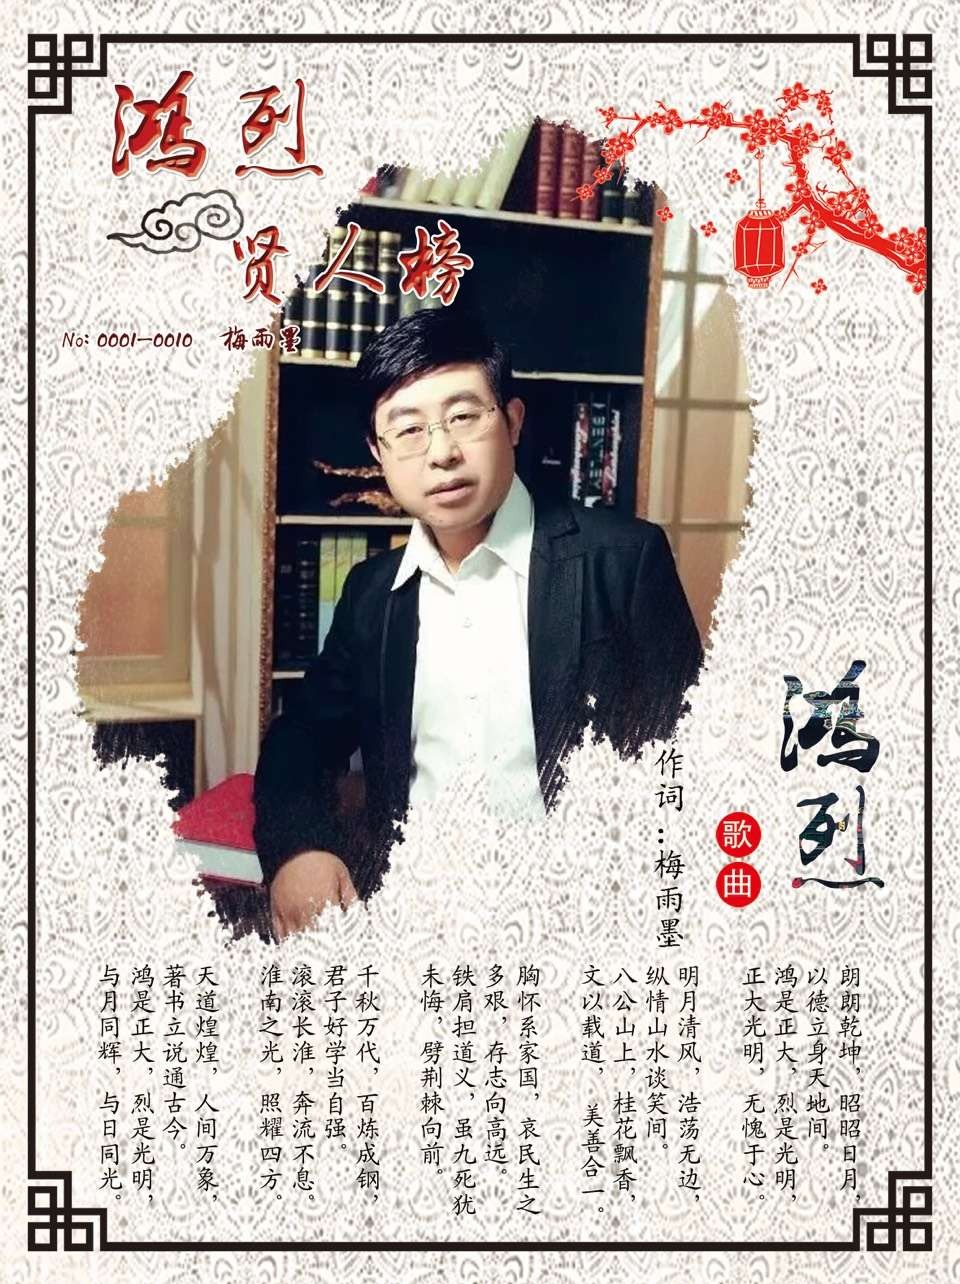 鸿烈
贤人榜
No: 0001-0010 梅雨墨
鸿烈
歌曲
作词：梅雨墨
朗朗乾坤，昭昭日月，
以德立身天地间。
鸿是正大，烈是光明，
正大光明，无愧于心。
明月清风，浩荡无边，
纵情山水谈笑间。
八公山上，桂花飘香，
文以载道，美善合一。
胸怀系家国，哀民生之
多艰，存志向高远。
铁肩担道义，虽九死犹
未悔，劈荆棘向前。
千秋万代，百炼成钢，
君子好学当自强。
滚滚长淮，奔流不息。
淮南之光，照耀四方。
天道煌煌，人间万象，
著书立说通古今。
鸿是正大，烈是光明，
与月同辉，与日同光。